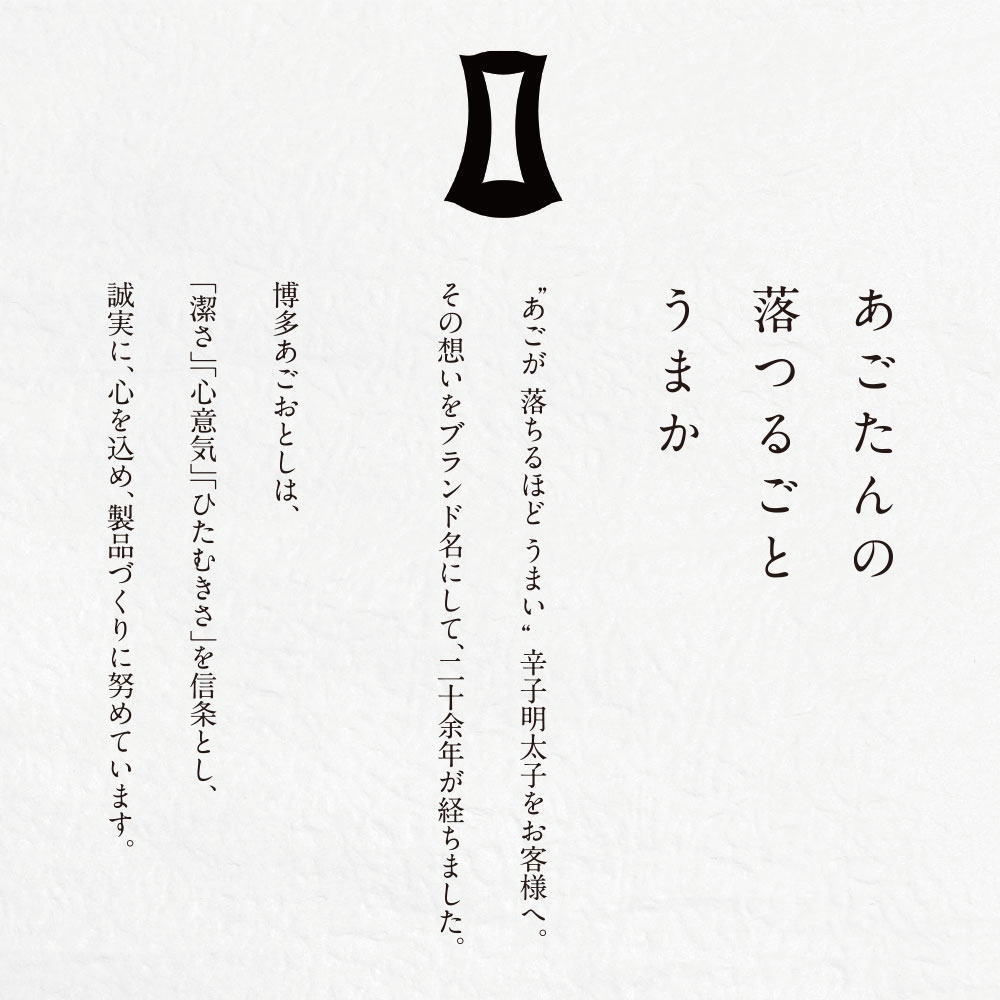 あごたんの
落つるごと
うまか
”あごが 落ちるほど うまい“ 辛子明太子をお客様へ。
その想いをブランド名にして、二十余年が経ちました。
博多あごおとしは、
「潔さ」「心意気」「ひたむきさ」を信条とし、
誠実に、心を込め、製品づくりに努めています。